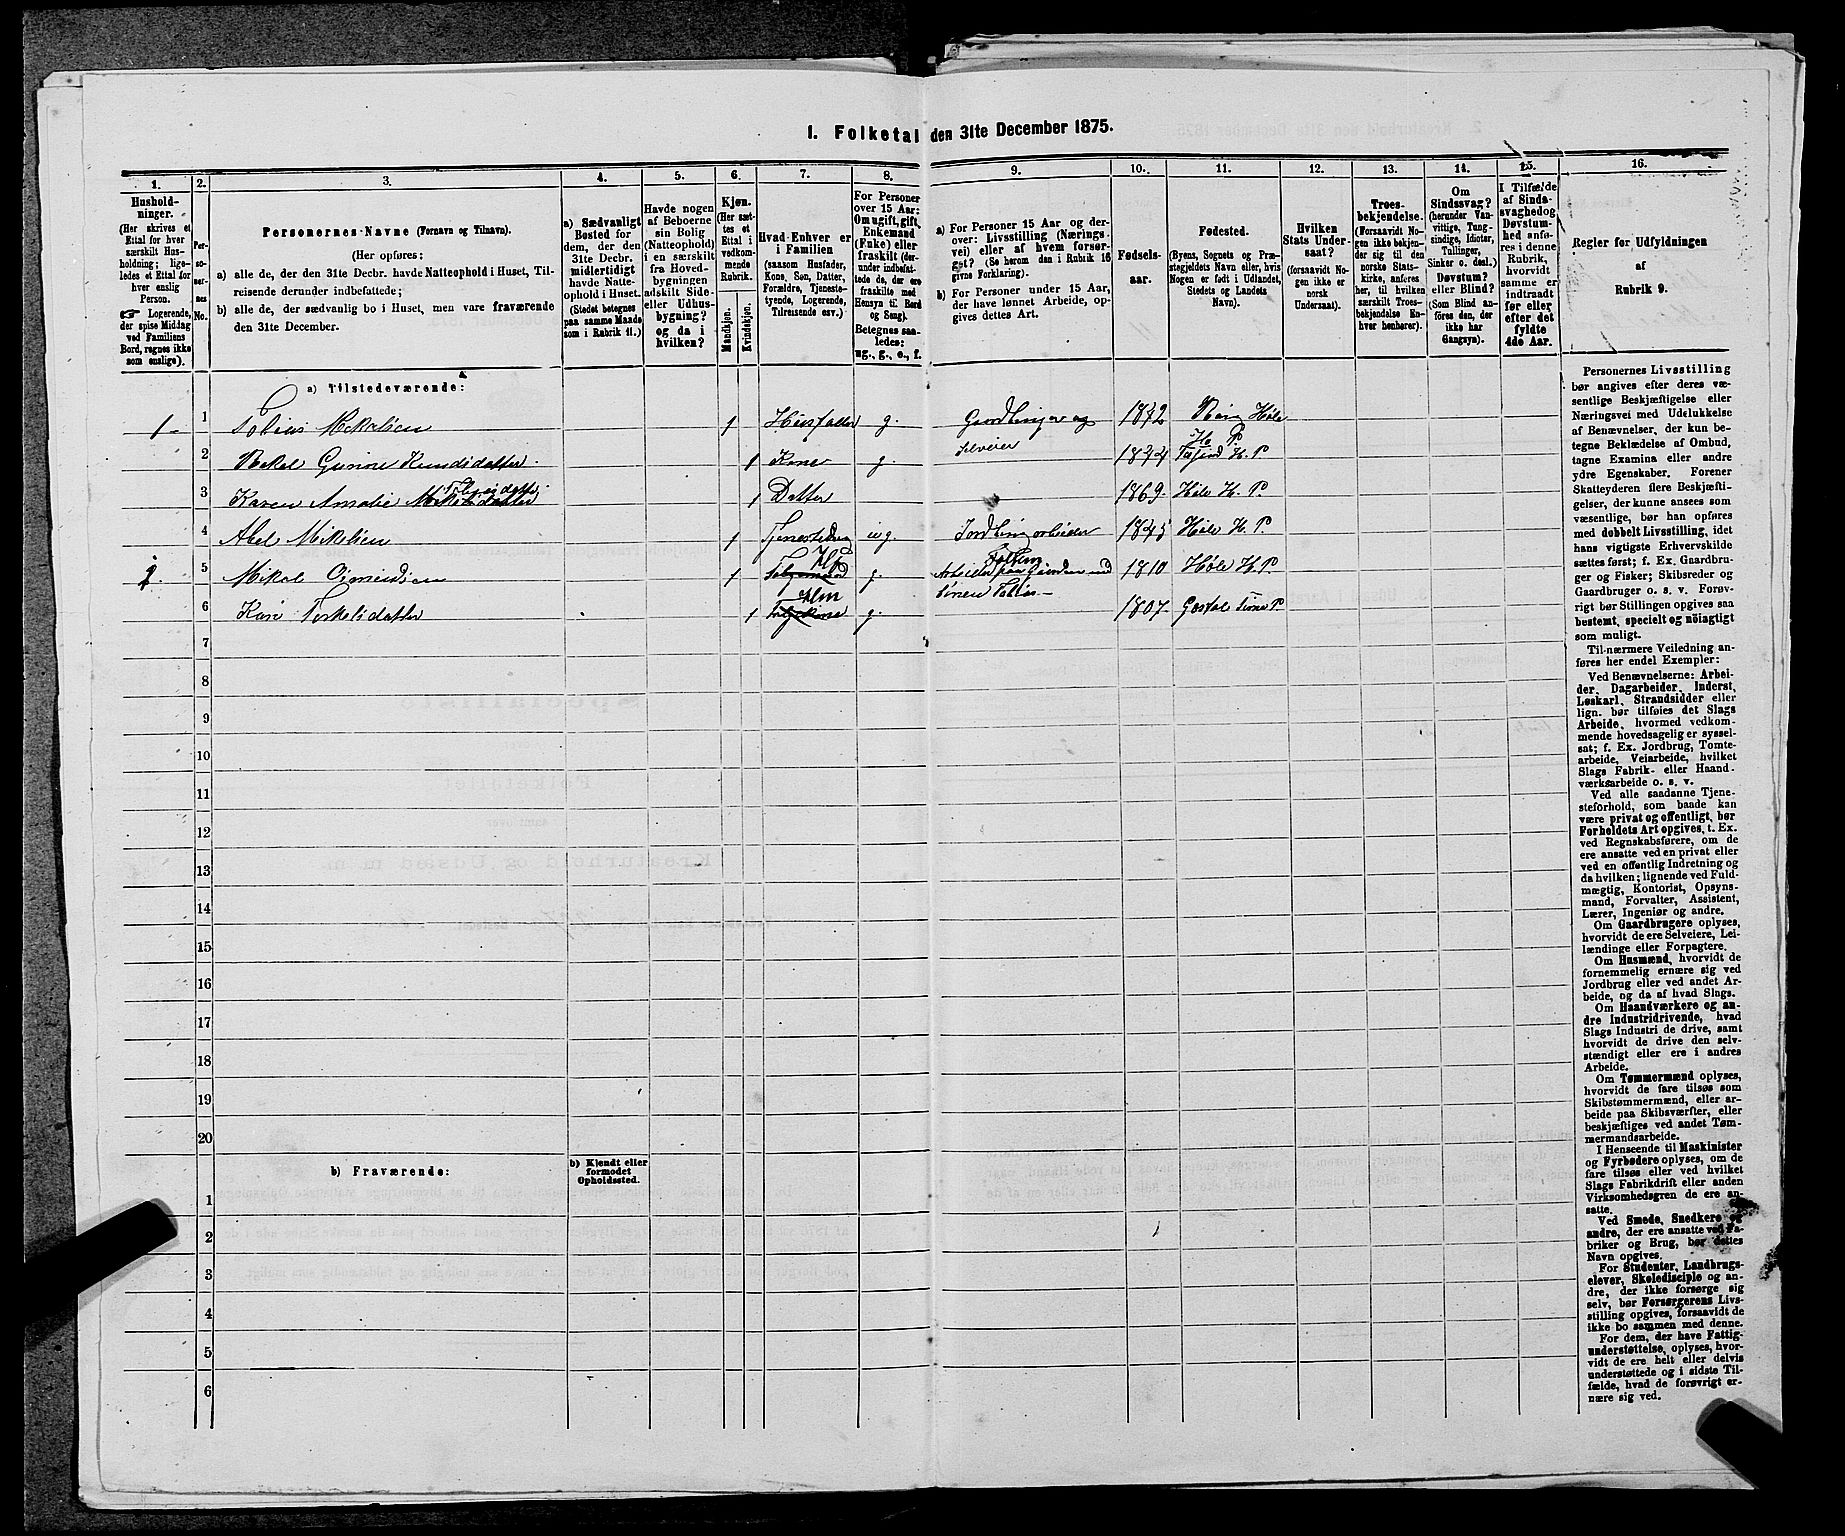 1. Folketal den 31te December 1875.
1. 2. 3. 4. 5. 6. 7. 8. 9. 10. 11. 12. 13. 14. 15. 16.
Hushold-
ninger.
(Her skrives et
Ettal for hver
særskilt Hus-
holdning; lige-
ledes et Ettal for
hver enslig
Person.
Logerende,
der spise Middag
ved Familiens
Bord, regnes ikke
som enslige).
Per-
so-
ner-
nes
No.
Personernes Navne (Fornavn og Tilnavn).
(Her opføres:
a) alle de, der den 31te Decbr. havde Natteophold i Huset, Til-
reisende derunder indbefattede;
b) alle de, der sædvanlig bo i Huset, men vare fraværende
den 31te December.
a) Sædvanligt
Bosted for
dem, der den
31te Decbr.
midlertidigt
havde Natte-
ophold i Huset.
(Stedet betegnes
paa samme Maade
som i Rubrik 11.)
Havde nogen
af Beboerne
sin Bolig
(Natteophold)
i en særskilt
fra Hoved-
bygningen
adskilt Side-
eller Udhus-
bygning?
og da i
hvilken?
Kjøn.
(Her sæt-
tes et
Ettal i
vedkom-
mende
Rubrik.
Mandkjøn.
Kvindekjøn.
Hvad Enhver er
i Familien
(saasom Husfader,
Kone, Søn, Datter,
Forældre, Tjeneste-
tyende, Logerende,
Tilreisende osv.)
For Personer
over 15 Aar:
Om ugift, gift,
Enkemand
(Enke) eller
fraskilt (der-
under indbefat-
tede de, der ere
fraskilte med
Hensyn til Bord
og Seng).
Betegnes saa-
ledes:
ug., g., e., f.
a) For Personer 15 Aar og der-
over: Livsstilling (Nærings-
vei) eller af hvem forsør-
get? (Se herom den i Rubrik 16
givne Forklaring).
b) For Personer under 15 Aar,
der have lønnet Arbeide, op-
gives dettes Art.
Fødsels-
aar.
Fødested.
(Byens, Sognets og Præ-
stegjeldets Navn eller, hvis
Nogen er født i Udlandet,
Stedets og Landets
Navn).
Hvilken
Stats Under-
saat?
(forsaavidt No-
gen ikke er
norsk
Undersaat).
Troes-
bekjendelse.
(Forsaavidt No-
gen ikke bekjen-
der sig til den
norske Stats-
kirke, anføres
her, til hvilken
særskilt Troes-
bekjendelse En-
hver henhører).
Om
Sindssvag?
(herunder Van-
vittige, Tung-
sindige, Idioter,
Tullinger,
Sinker o. desl.)
Døvstum?
eller Blind?
(Som Blind an-
føres den, der
ikke har
Gangsyn).
I Tilfælde
af Sinds-
svaghed og
Døvstum-
hed anfø-
res i denne
Rubrik,
hvorvidt
samme er
indtraadt
før eller
efter det
fyldte
4de Aar.
Regler for Udfyldningen
af
Rubrik 9.
a) Tilstedeværende:
1 1 Tobias Mikalsen 1 Husfader g. Gaardbruger og Selveier 1842 Høle
2 Rakel Gurine Knudsdatter 1 Kone g. H. P.
3 Karen Amalie 1 Datter 1869 Høle H. P.
4 Abel Mikalsen 1 ug. 1845 Høle H. P.
2. 5 Mikal 1 g. 1810 Høle H. P.
6 Kari Torkelsdatter 1 g. 1807
7
8
9
10
11
12
13
14
15
16
17
18
19
20
b) Fraværende:
b) Kjendt eller
formodet
Opholdssted.
1
2
3
4
5
6
Personernes Livsstilling
bør angives efter deres væ-
sentlige Beskjæftigelse eller
Næringsvei med Udelukkelse
af Benævnelser, der kun be-
tegne Beklædelse af Ombud,
tagne Examina eller andre
ydre Egenskaber. Forener
Skatteyderen flere Beskjæfti-
gelser, der kunne ansees som
væsentlige, bør han opføres
med dobbelt Livsstilling, idet
hans vigtigste Erhvervskilde
sættes først; f. Ex. Gaardbru-
ger og Fisker; Skibsreder og
Gaardbruger o. s. v. Forøv-
rigt bør Stillingen opgives saa
bestemt, specielt og nöiagtigt
som muligt.
Til nærmere Veiledning an-
føres her endel Exempler:
Ved Benævnelserne: Arbei-
der, Dagarbeider, Inderst,
Løskarl, Strandsidder eller
lign. bør tilføies det Slags
Arbeide, hvormed vedkom-
mende hovedsagelig er syssel-
sat; f. Ex. Jordbrug, Tomte-
arbeide, Veiarbeide, hvilket
Slags Fabrik- eller Haand-
værksarbeide o. s. v.
Ved alle saadanne Tjene-
steforhold, som baade kan
være privat og offentligt, bør
Forholdets Art opgives, t. Ex.
ved Regnskabsførere, om de
ere ansatte ved en privat eller
ved en offentlig Indretning og
da hvilken; lignende ved Fuld-
mægtig, Kontorist, Opsyns-
mand, Forvalter, Assistent,
Lærer, Ingeniør og andre.
Om Gaardbrugere oplyses,
hvorvidt de ere Selveiere, Lei-
lændinge eller Forpagtere.
Om Husmænd, hvorvidt de
fornemmelig ernære sig ved
Jordbrug eller ved andet Ar-
beide, og da af hvad Slags.
Om Haandværkere og an-
dre Industridrivende, hvad
Slags Industri de drive, samt
hvorvidt de drive den selv-
stændigt eller ere i andres
Arbeide.
Om Tømmermænd oplyses,
hvorvidt de fare tilsøs som
Skibstømmermænd, eller ar-
beide paa Skibsværfter, eller
beskjæftiges ved andet Tøm-
mermandsarbeide.
I Henseende til Maskinister
og Fyrbødere oplyses, om de
fare tilsøs eller ved hvilket
Slags Fabrikdrift eller anden
Virksomhedsgren de ere an-
satte.
Ved Smede, Snedkere og
andre, der ere ansatte ved Fa-
briker og Brug, bør dettes
Navn opgives.
For Studenter, Landbrugs-
elever, Skoledisciple og an-
dre, der ikke forsørge sig
selv, bør Forsørgerens Livs-
stilling opgives, forsaavidt de
ikke bo sammen med denne.
For dem, der have Fattig-
understøttelse, oplyses, hvor-
vidt de ere helt eller delvis
understøttede og i sidste Til-
fælde, hvad de forøvrigt er-
nære sig ved.